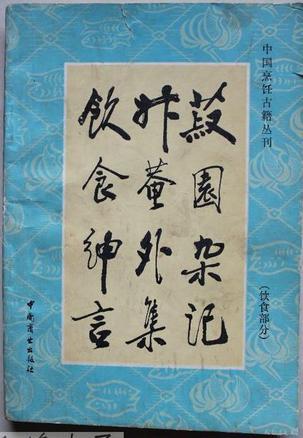 中国烹饪古籍丛刊
菽園杂记
升菴外集
飲食绅言
（饮食部分）
中国商业出版社